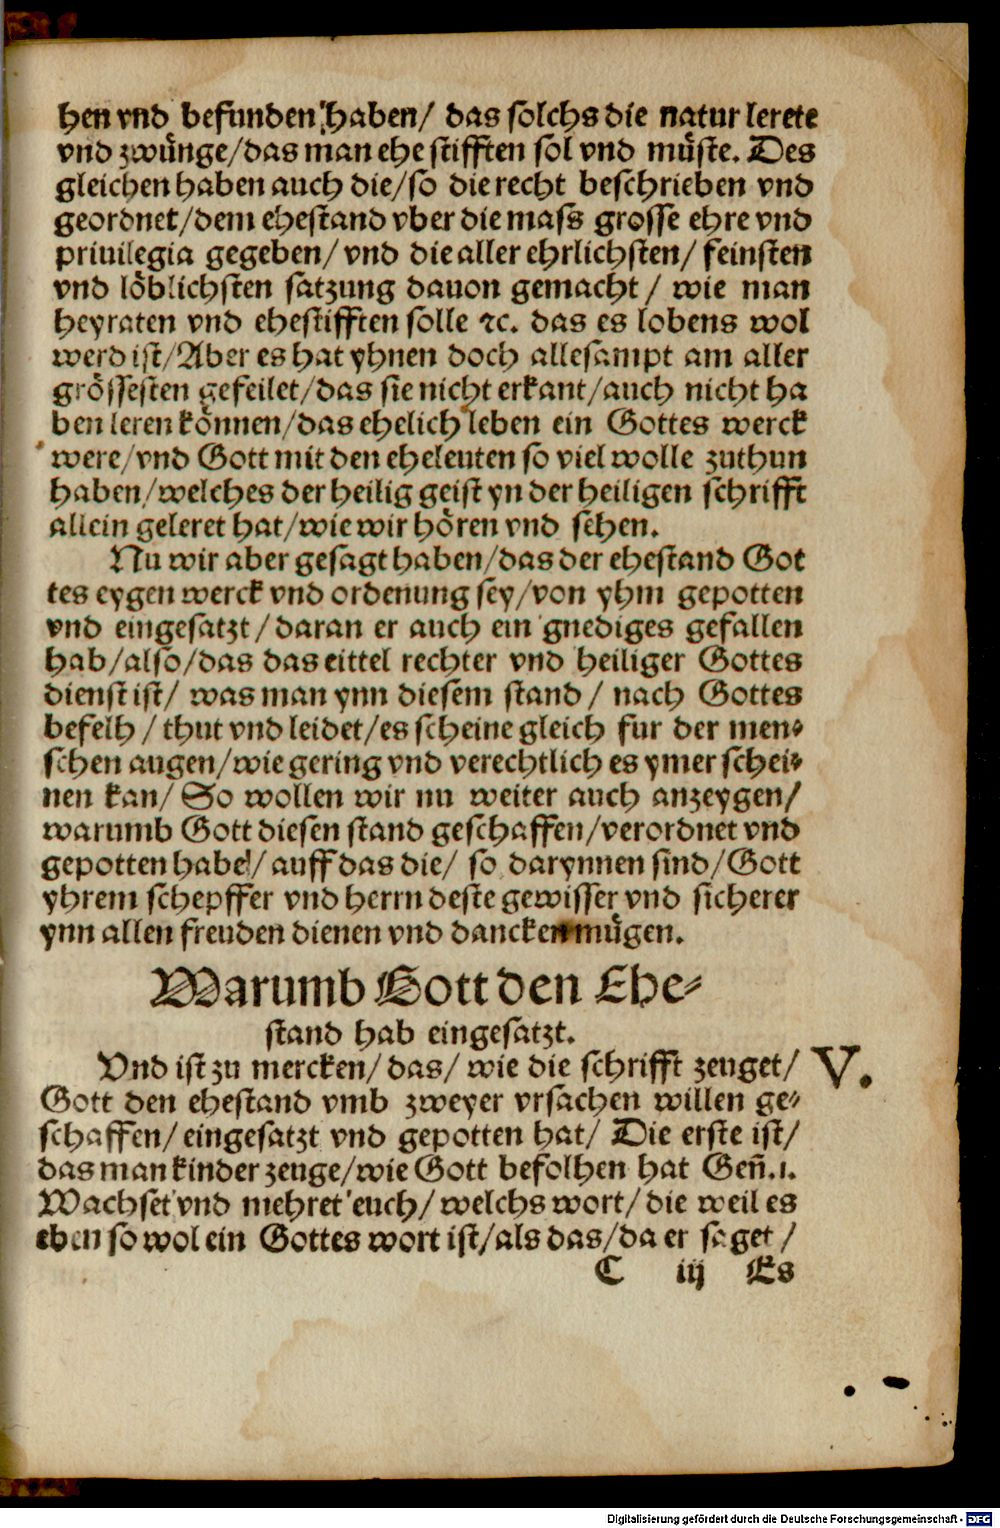 hen vnd befunden haben/ das solchs die natur lerete
vnd zwünge/das man ehe stifften sol vnd müste. Des
gleichen haben auch die/so die recht beschrieben vnd
geordnet/dem ehestand vber die mass grosse ehre vnd
priuilegia gegeben/ vnd die aller ehrlichsten/ feinsten
vnd löblichsten satzung dauon gemacht/ wie man
heyraten vnd ehestifften solle ⁊c. das es lobens wol
werd ist/Aber es hat yhnen doch allesampt am aller
grössesten gefeilet/das sie nicht erkant/auch nicht ha
ben leren können/das ehelich leben ein Gottes werck
were/vnd Gott mit den eheleuten so viel wolle zuthun
haben/welches der heilig geist yn der heiligen schrifft
allein geleret hat/wie wir hören vnd sehen.
Nu wir aber gesagt haben/das der ehestand Got
tes eygen werck vnd ordenung sey/von yhm gepotten
vnd eingesatzt/daran er auch ein gnediges gefallen
hab/also/das das eittel rechter vnd heiliger Gottes
dienst ist/ was man ynn diesem stand/ nach Gottes
befelh/thut vnd leidet/es scheine gleich fur der men⸗
schen augen/wie gering vnd verechtlich es ymer schei⸗
nen kan/ So wollen wir nu weiter auch anzeygen/
warumb Gott diesen stand geschaffen/verordnet vnd
gepotten habe/auff das die/ so darynnen sind/Gott
yhrem schepffer vnd herrn deste gewisser vnd sicherer
ynn allen freuden dienen vnd dancken mügen.
Warumb Gott den Ehe⸗
stand hab eingesatzt.
Vnd ist zu mercken/das/ wie die schrifft zeuget/
V.
Gott den ehestand vmb zweyer vrsachen willen ge⸗
schaffen/eingesatzt vnd gepotten hat/ Die erste ist/
das man kinder zeuge/wie Gott befolhen hat Geñ.1.
Wachset vnd mehret euch/welchs wort/die weil es
eben so wol ein Gottes wort ist/als das/da er saget/
C iij Es
Digitalisierung gefördert durch die Deutsche Forschungsgemeinschaft - DFG